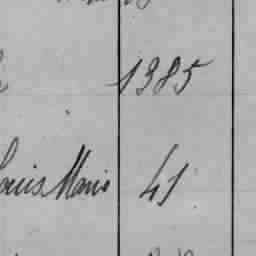 1385
Louis Marie 41